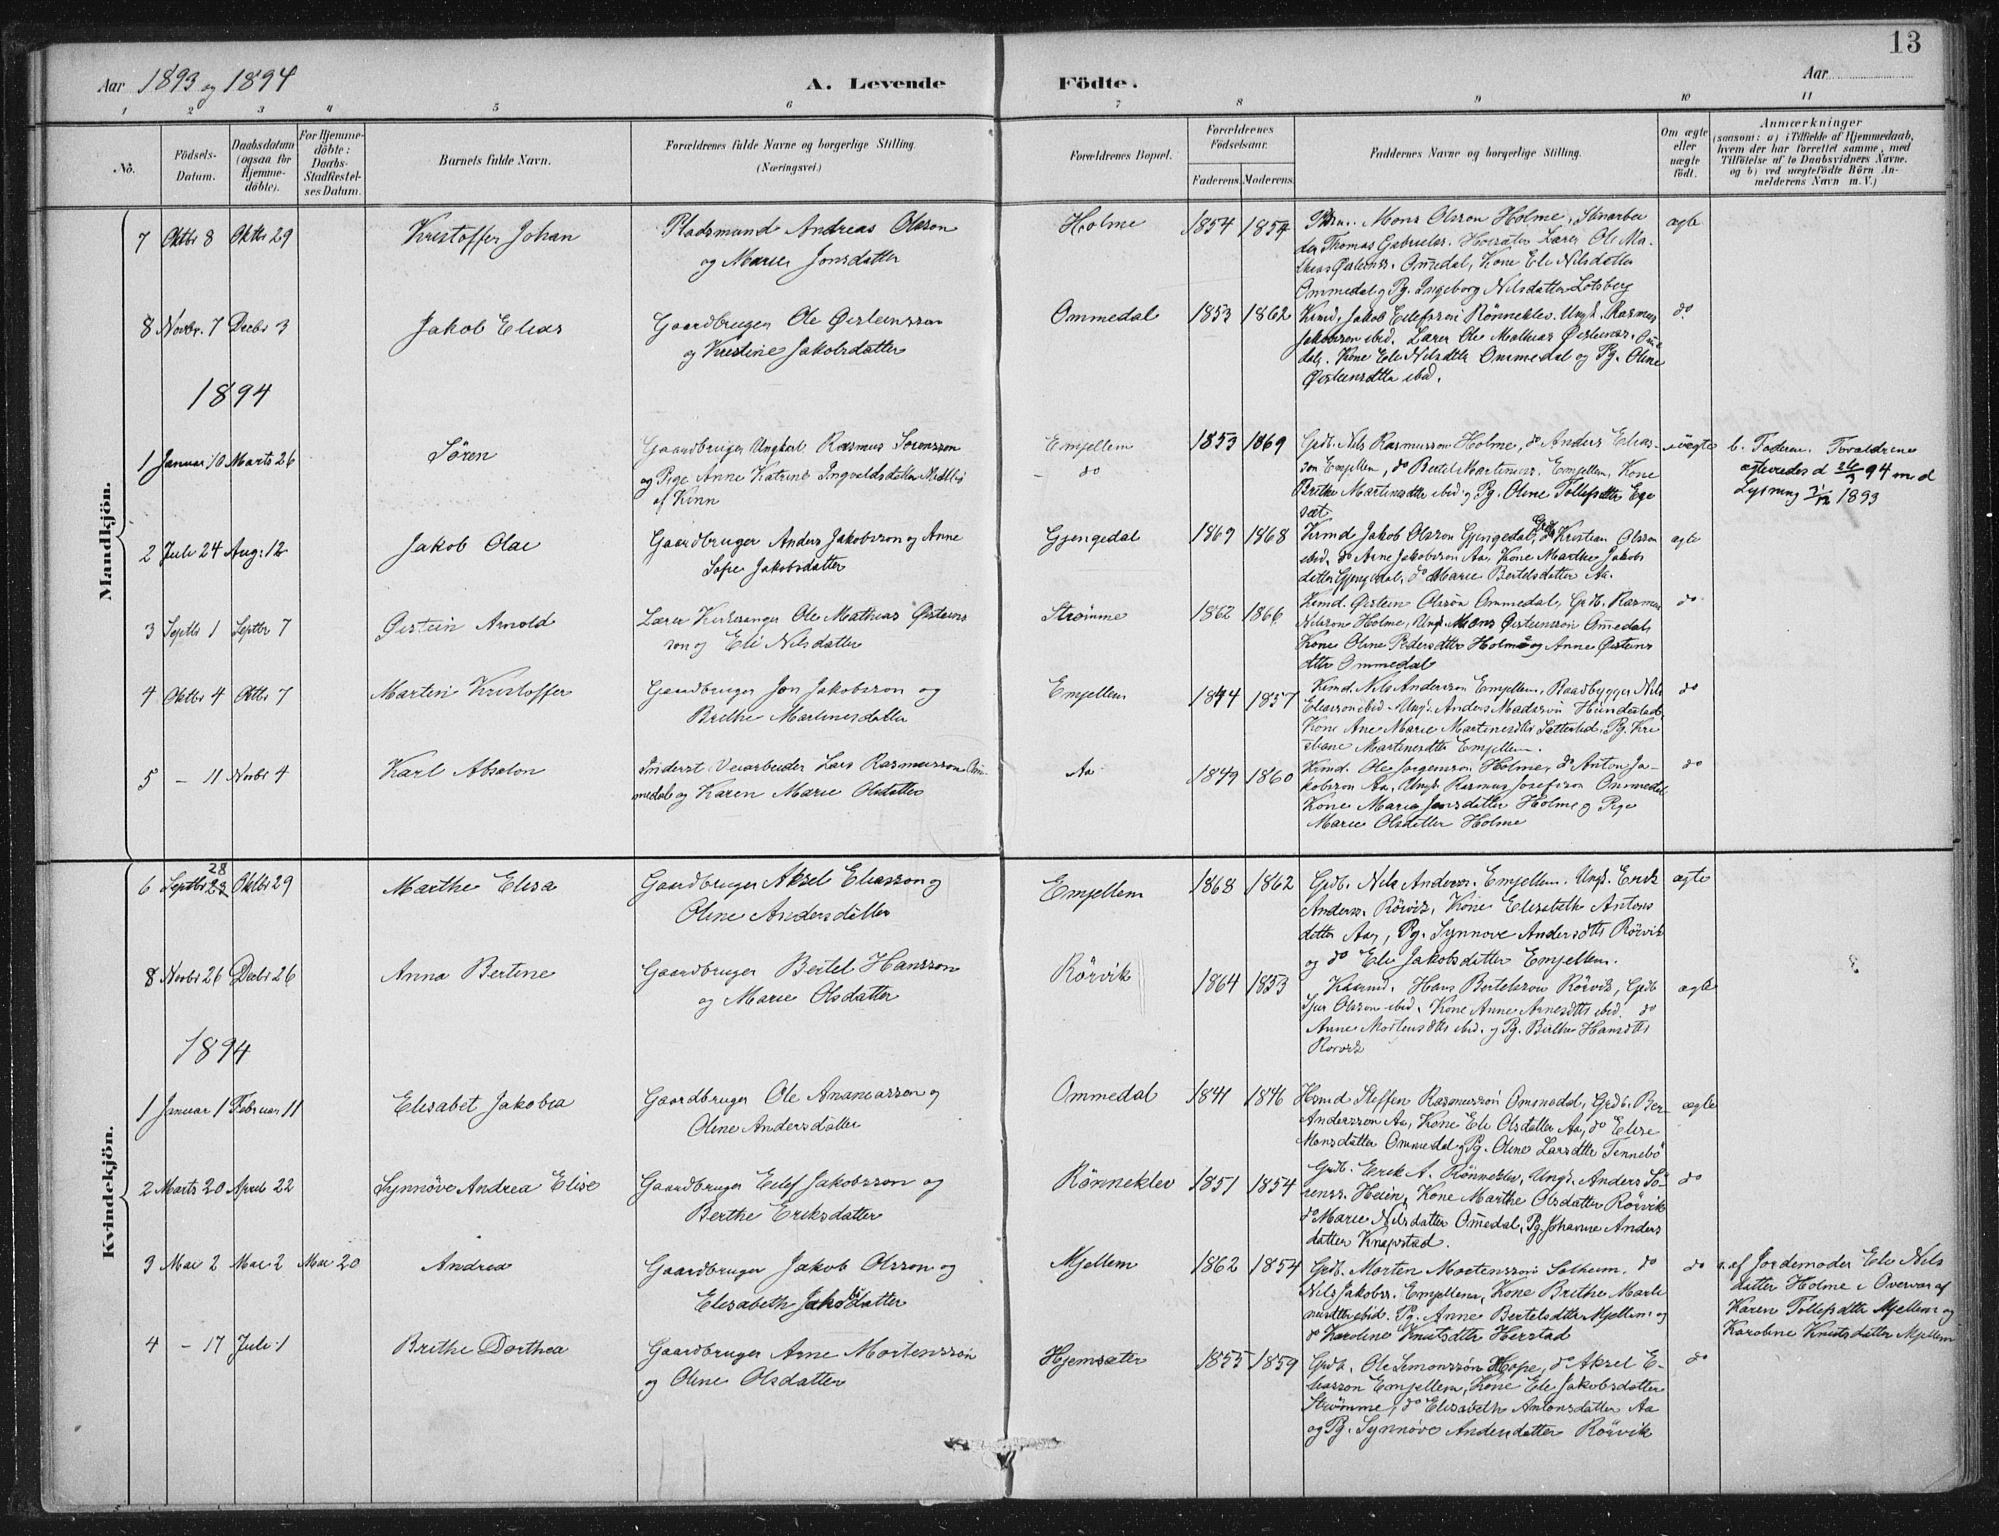 13
Aar 1893 og 1894
A. Levende
Födte.
Aar
1 2 3 4 5 6 7 8 9 10 11
No.
Födsels-
Datum.
Daabsdatum
(ogsaa för
Hjemme-
döbte).
For Hjemme-
döbte:
Daabs-
Stadfæstel-
ses Datum.
Barnets fulde Navn.
Forældrenes fulde Navne og borgerlige Stilling.
(Næringsvei.)
Forældrenes Bopæl.
Forældrenes
Födselsaar.
Faderens. Moderens.
Faddernes Navne og borgerlige Stilling.
Om ægte
eller
uægte
födt.
Anmærkninger
(saasom: a) i Tilfælde af Hjemmedaab,
hvem der har forrettet samme, med
Tilföielse af to Daabsvidners Navne.
og b) ved uægtefödte Börn An-
melderens Navn m. V.)
Mandkjön.
7 Oktbr 8 Oktbr 29
Kristoffer Johan
Pladsmand Andreas Olsson
og Marie Jonsdatter
Holme
1854 1854
Mons Olsson Holme, Stenarbei
der Thomas Gabriels. Lærer Ole Ma-
thias Øistenss. Omedal, Kone Eli Nilsdatter
Ommedal og Pg. Ingeborg Nilsdatter Lotsberg
ægte
8 Novbr. 7 Decbr 3
Jakob Elias
Gaardbruger Ole Øisteinsson
og Kristine Jakobsdatter
Ommedal
1853 1862
Kmd. Jakob Eilefsson Rönneklev. Ungk. Rasmus
Jakobsson ibid. Lærer Ole Mathias Øisteinss. Om̄e
dal. Kone Eli Nilsdtr Ommedal og Pg. Oline
Øisteinsdtr ibid.
do
1894
1 Januar 10 Marts 26
Sören
Gaardbruger Ungkarl Rasmus Sörensson
og Pige Anne Katrine Ingvaldsdatter
af Kinn
Emjellem
– do
1853 1869
Grdb. Nils Rasmusson Holme, do Anders Elias-
son Emjellem, do Bertel Martinuss. Emjellem, Kone
Brithe Martinsdtr ibid og Pg. Oline Tollefsdtr Ege
sæt.
uægte
b. Faderen. Forældrene
ægteviedes d 26/3 94 m d
Lysning 3/12 1893
2 Juli 24 Aug: 12
Jakob Olai
Gaardbruger Anders Jakobsson og Anne
Sofie Jakobsdatter
Gjengedal
1869 1868
Kmd Jakob Olsson Gjengedal, Grdb Kristian Olsson
ibid. do Arne Jakobsson Aa, Kone Marthe Jakobs
datter Gjengedal, do Marie Bertelsdatter Aa.
ægte
3 Septbr 1 Septbr 7
Øistein Arnold
Lærer Kirkesanger Ole Mathias Øisteins
son og Eli Nilsdatter
Strømme
1862 1866
Kmd. Øistein Olsson Ommedal, Grdb. Rasmus
Nilsson Holme, Ungk. Mons Øisteinsson Om̄edal,
Kone Oline Pedersdtr Holme og Anne Øisteins
dtr Ommedal
do
4 Oktbr 4 Oktbr 7
Martin Kristoffer
Gaardbruger Jon Jakobsson og
Brithe Martinesdatter
Emjellem
1844 1857
Kmd. Nils Andersson Emjellem, Baadbygger Nils
Eliasson ibid. Ungk. Anders Madsson Hundestad,
Kone Ane Marie Martinesdtr Sætterlid, Pg. Kri
stiane Martinesdtr Emjellem.
do
5 – 11 Novbr 4
Karl Absalon
Inderst Veiarbeider Lars Rasmusson Om
medal og Karen Marie Olsdatter
Aa
1849 1860
Kmd. Ole Jörgensson Holme, do Anton Ja-
kobsson Aa, Ungk. Rasmus Josefsson Ommedal
Kone Marie Jonsdatter Holme og Pige
Marie Olsdatter Holme
do
Kvindekjön.
6 Septbr 28 Oktbr 29
Marthe Elisa
Gaardbruger Aksel Eliasson og
Oline Andersdatter
Emjellem
1868 1862
Grdb. Nils Anderss. Emjellem. Ungk. Erik
Anderss. Rörvik, Kone Elisabeth Antons
datter Aa, Pg. Synnove Andersdtr Rörvik
og do Eli Jakobsdatter Emjellem.
ægte
8 Novbr 26 Decbr 26
Anna Bertine
Gaardbruger Bertel Hansson
og Marie Olsdatter
Rörvik
1864 1853
Kaarmd. Hans Bertelsson Rörvik, Grdb
Sjur Olsson ibid. Kone Anne Arnesdtr ibid. do
Anne Mortensdtr ibid. og Pg. Brithe Hansdtr
Rorvik
ægte
1894
1 Januar 1 Februar 11
Elisabet Jakobia
Gaardbruger Ole Ananiasson og
Oline Andersdatter
Ommedal
1841 1846
Hsmd Steffen Rasmusson Ommedal, Grdb. Ber-
Andersson Aa, Kone Eli Olsdatter Aa, do Elise
Monsdatter Ommedal og Pg. Oline Larsdtr Tennebö
ægte
2 Marts 20 April 22
Synnöve Andrea Elise
Gaardbruger Eilef Jakobsson og
Berthe Eriksdatter
Rönneklev
1851 1854
Grdb. Erik A. Rönneklev, Ungk. Anders Sö-
renss. Heien, Kone Marthe Olsdatter Rörvik
do Marie Nilsdatter Om̄edal, Pg. Johanne Anders
datter Knapstad.
do
3 Mai 2 Mai 2 Mai 20
Andrea
Gaardbruger Jakob Olsson og
Elisabeth Jakobsdatter
Mjellem
1862 1854
Grdb. Morten Mortensson Solheim. do
Nils Jakobss. Emjellem, Kone Brithe Marti
nusdtr ibid. Pg. Anne Bertelsdtr Mjellem og
do Karoline Knutsdtr Herstad
do
a. af Jordemoder Eli Nils
datter Holme i Overvær af
Karen Tollefsdtr Mjellem og
Karoline Knutsdatter Mjellem
4 – 17 Juli 1
Brithe Dorthea
Gaardbruger Arne Mortensson
og Oline Olsdatter
Hjemsæter
1855 1859
Grdb. Ole Simonsson Hope, do Aksel E-
liasson Emjellem, Kone Eli Jakobsdatter
Strømme, do Elisabeth Antonsdatter Aa
og Pg. Synnøve Andersdatter Rörvik
do